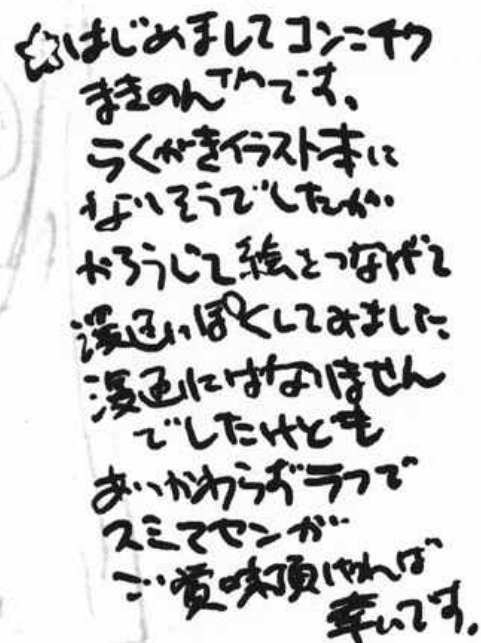 ☆はじめましてコンニチワ
まきのん™です。
らくがきイラスト本に
なりそうでしたが
かろうじて絵をつなげて
漫画っぽくしてみました
漫画にはなりません
でしたけども
あいかわらずラフで
スミマセンが
ご賞味頂ければ
幸いです。